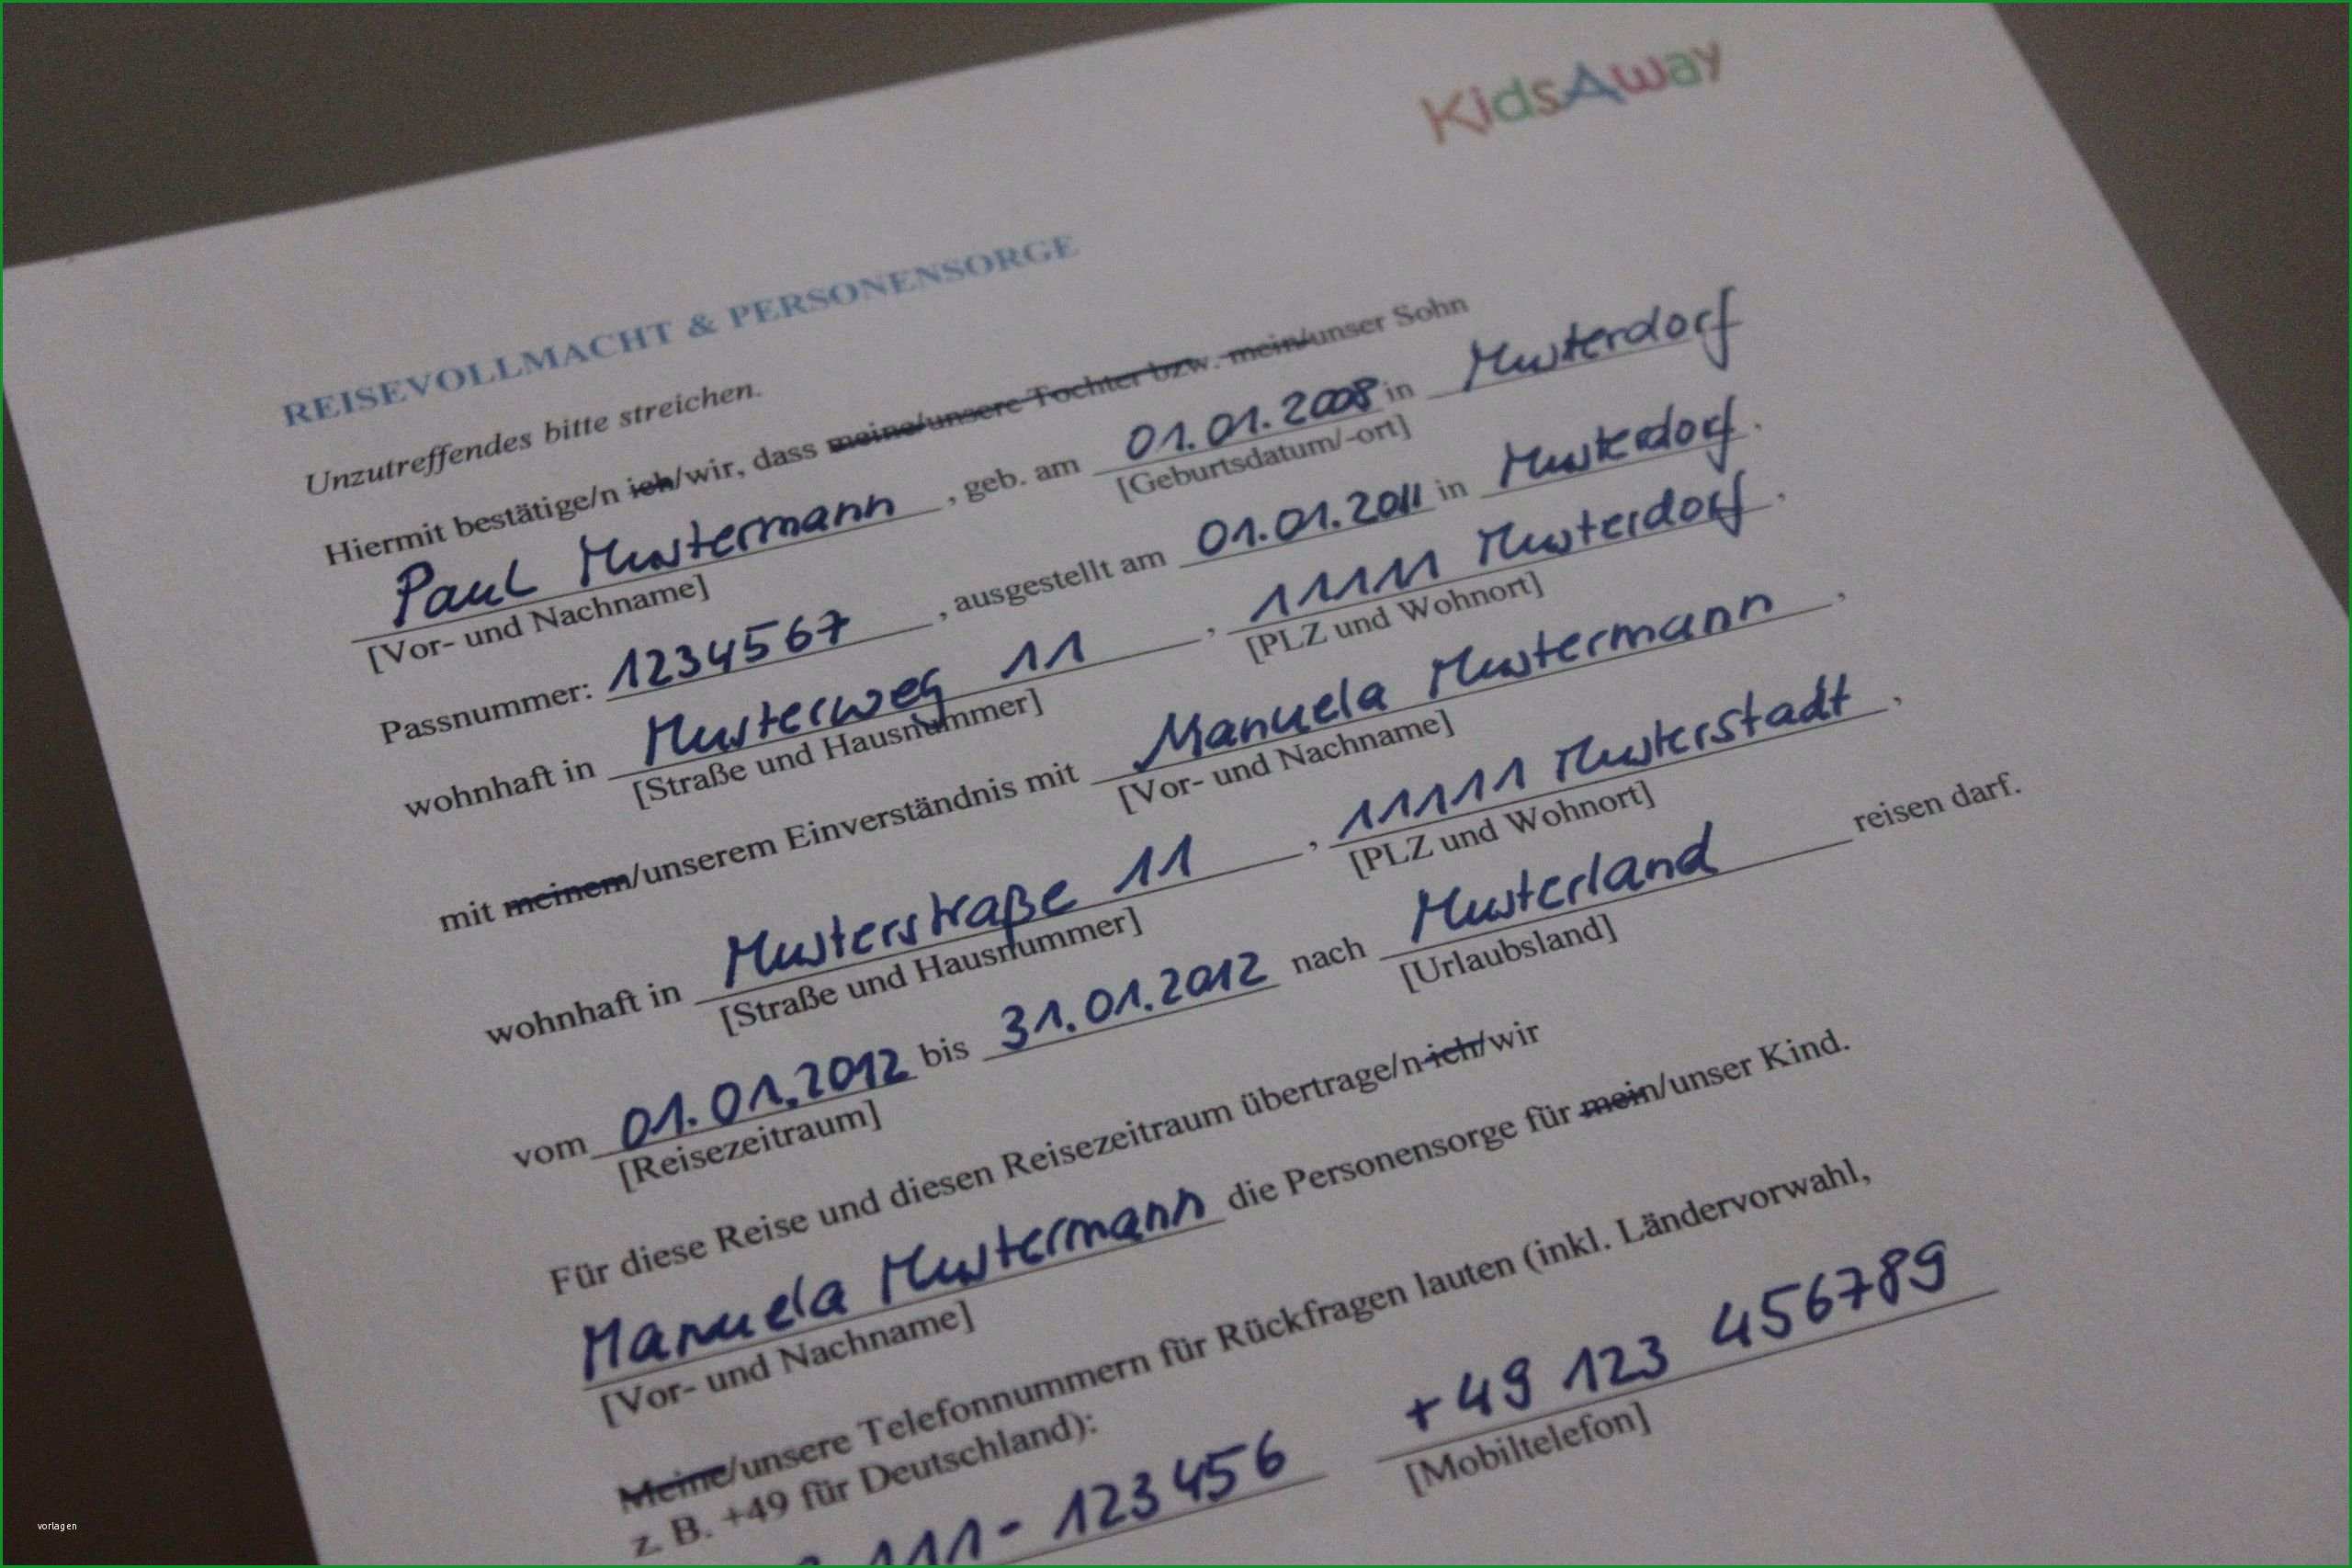 KidsAway
REISEVOLLMACHT & PERSONENSORGE
Unzutreffendes bitte streichen.
Hiermit bestätige/n ich/wir, dass meine/unsere Tochter bzw. mein/unser Sohn
Paul Mustermann, geb. am 01.01.2008 in Musterdorf
[Vor- und Nachname] [Geburtsdatum/-ort]
Passnummer: 1234567, ausgestellt am 01.01.2011 in Musterdorf.
wohnhaft in Musterweg 11, 11111 Musterdorf,
[Straße und Hausnummer] [PLZ und Wohnort]
mit meinem/unserem Einverständnis mit Manuela Mustermann,
[Vor- und Nachname]
wohnhaft in Musterstraße 11, 11111 Musterstadt,
[Straße und Hausnummer] [PLZ und Wohnort]
vom 01.01.2012 bis 31.01.2012 nach Musterland reisen darf.
[Reisezeitraum] [Urlaubsland]
Für diese Reise und diesen Reisezeitraum übertrage/n ich/wir
Manuela Mustermann die Personensorge für mein/unser Kind.
[Vor- und Nachname]
Meine/unsere Telefonnummern für Rückfragen lauten (inkl. Ländervorwahl,
z. B. +49 für Deutschland):
111-123456 +49 123 456789
[Mobiltelefon]
vorlagen